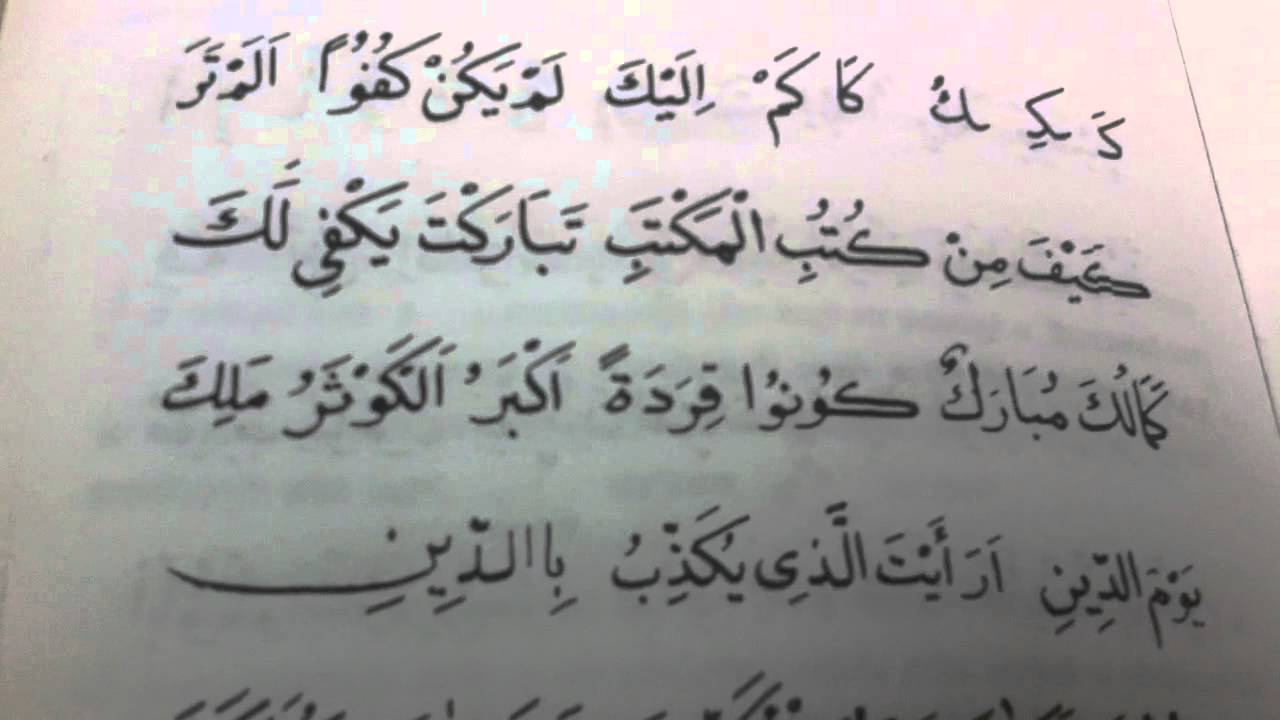 كَـ ـكِـ ـكُ كَا كَمْ اِلَيْكَ لَمْ يَكُنْ كُفُوًا اَلَمْ تَرَ
كَيْفَ مِنْ كُتُبِ الْمَكْتَبِ تَبَارَكْتَ يَكْفِي لَكَ
كَمَالُكَ مُبَارَكٌ كُونُوا قِرَدَةً اَكْبَرُ اَلْكَوْثَرُ مَلِكِ
يَوْمِ الدِّينِ اَرَأَيْتَ الَّذِى يُكَذِّبُ بِاالدِّينِ